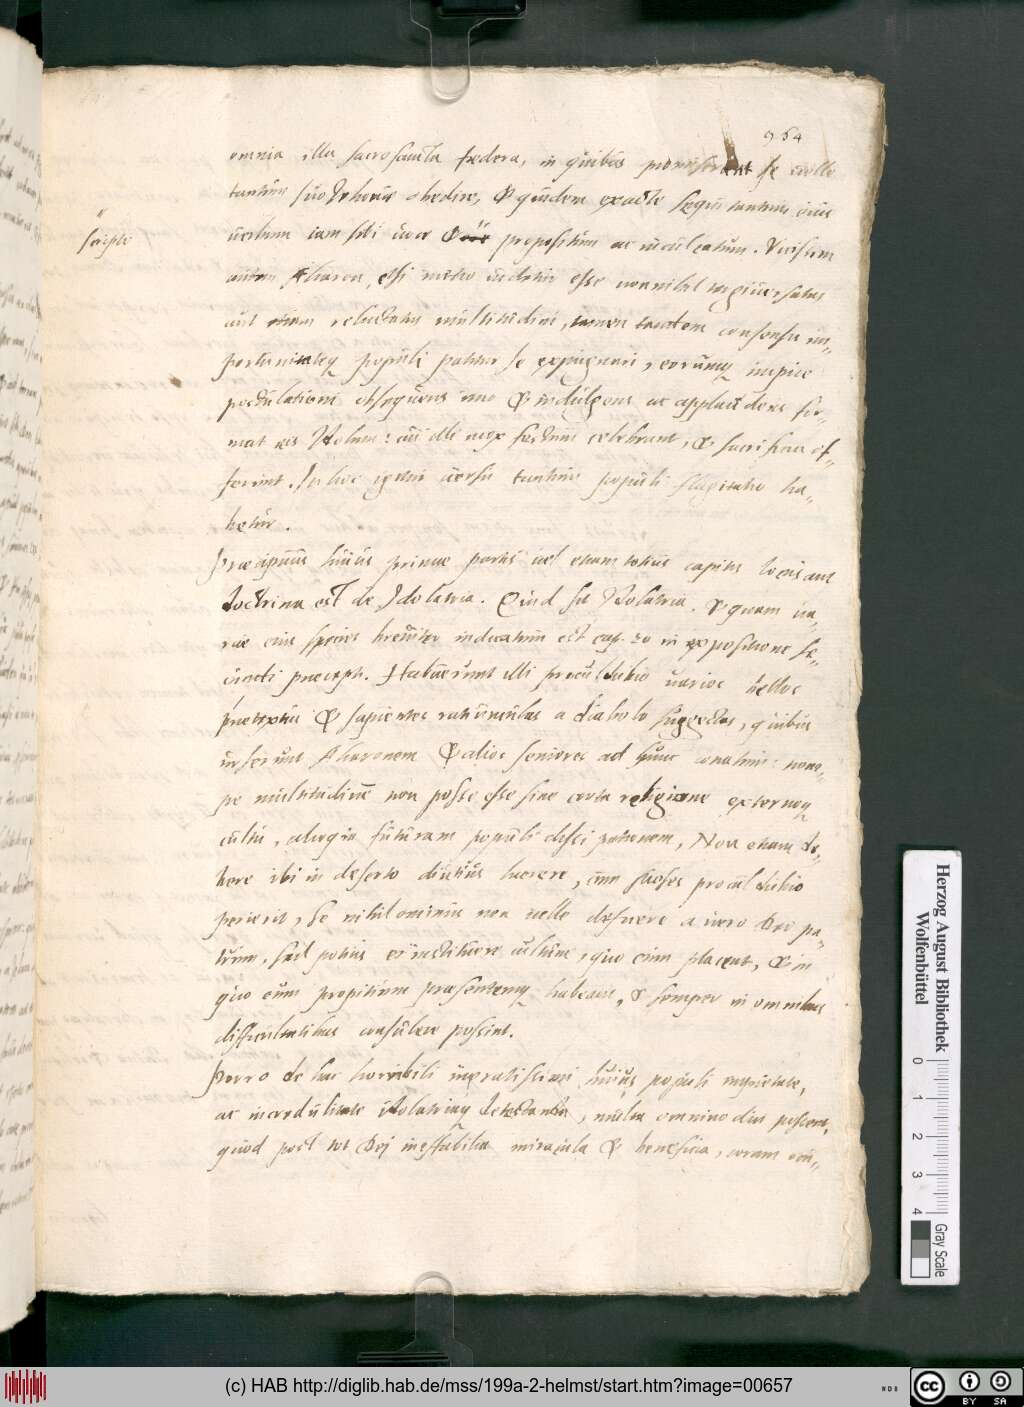 954
omnia illa sacrosancta foedera, in quibus promiserant se velle
tantum suo Jehovae obedire, & quidem exacte sequi tantum eius
scripto
verbum iam sibi viva voce propositum ac inculcatum. Victum
autem Aharon, etsi metu videtur esse nonnihil tergiversatus
aut etiam reluctatus multitudini, tamen tandem consensu im-
portunitateque populi patitur se expugnari, eorumque impiae
postulationi obsequens imo & indulgens ac applaudens for-
mat eis Idolum: cui illi mox festum celebrant, & sacrificia of-
ferunt. In hoc igitur versu tantum populi flagitatio ha-
betur.
Praecipuus huius primae partis vel etiam totius capitis locus aut
doctrina est de Idolatria. Quid sit Idolatria & quam va-
riae eius species breviter indicatum est cap. 20 in expositione se-
cundi praecepti. Habuerunt illi procul dubio varios bellos
praetextus & sapientes ratiunculas a diabolo suggestas, quibus
Aharonem & alios seniores ad hunc conatum: nem-
pe multitudinem non posse esse sine certa religione externoque
cultu, alioqui futuram populi dissipationem, Non etiam de-
bere ibi in deserto diutius haerere, cum Moses procul dubio
perierit, Se nihilominus non velle desciscere a vero Deo pa-
trum, sed potius ei instituere cultum, quo eum placent, & in
quo eum propitium praesentemque habeant, & semper in omnibus
difficultatibus consulere possint.
Porro de hac horribili ingratissimi huius populi impietate,
ac incredulitate idolatriaque detestanda, multa omnino dici possent,
quod post tot Dei ineffabilia miracula & beneficia, coram
Herzog August Bibliothek
Wolfenbüttel
0
1
2
3
4
Gray Scale
(c) HAB http://diglib.hab.de/mss/199a-2-helmst/start.htm?image=00657
cc BY SA